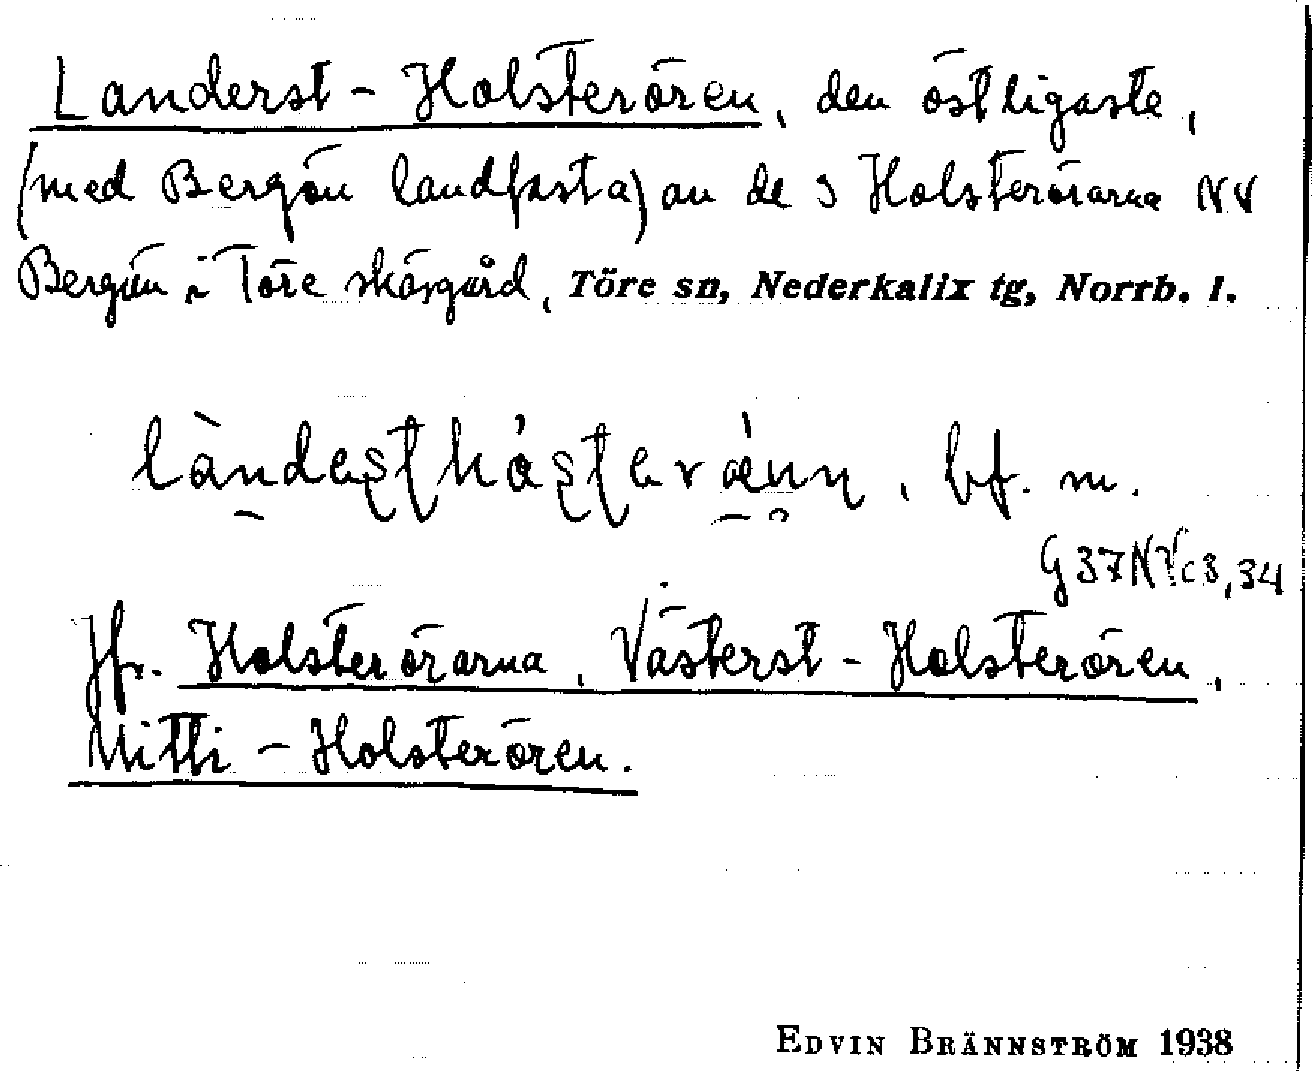 Landerst-Holsterören, den östligaste,
(med Bergön landfasta) av de 3 Holsterörarna NV
Bergön i Töre skärgård, Töre sn, Nederkalix tg, Norrb. l.
bf. m.
G37NVc8,34
Jfr. Holsterörarna, Västerst-Holsterören,
Mitti-Holsterören.
EDVIN BRÄNNSTRÖM 1938